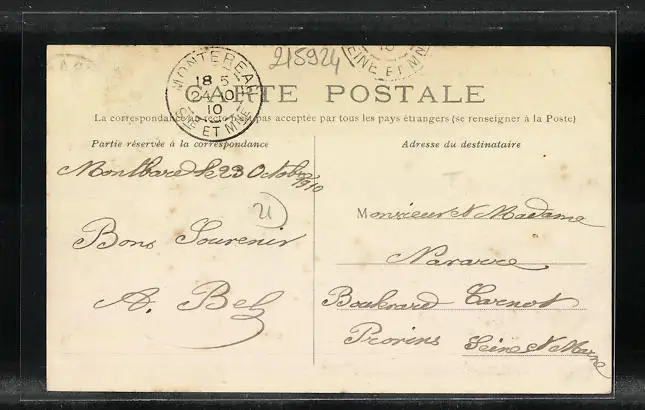 215924
MONTEREAU
18 5
24 10
10
SNE ET MNE
INE ET MN
CARTE POSTALE
La correspondance au recto n'est pas acceptée par tous les pays étrangers (se renseigner à la Poste)
Partie réservée à la correspondance
Montbard le 23 Octobre
1910
21
Bons Souvenir
A. Bel
Adresse du destinataire
Monsieur et Madame
Navarre
Boulevard Carnot
Provins Seine et Marne